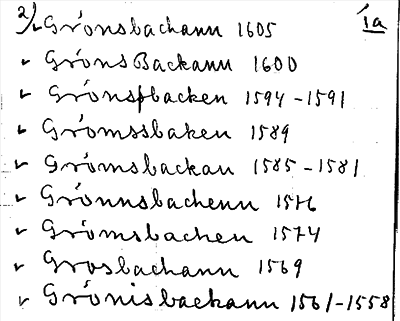 2) Grönsbachann 1605 1a
✓ GrönsBackann 1600
✓ Grönsfbacken 1594-1591
✓ Grömssbaken 1589
✓ Grömsbackau 1585-1581
✓ Grönnsbachenn 1576
✓ Grömsbachen 1574
✓ Grosbachann 1569
✓ Grönisbackann 1561-1558